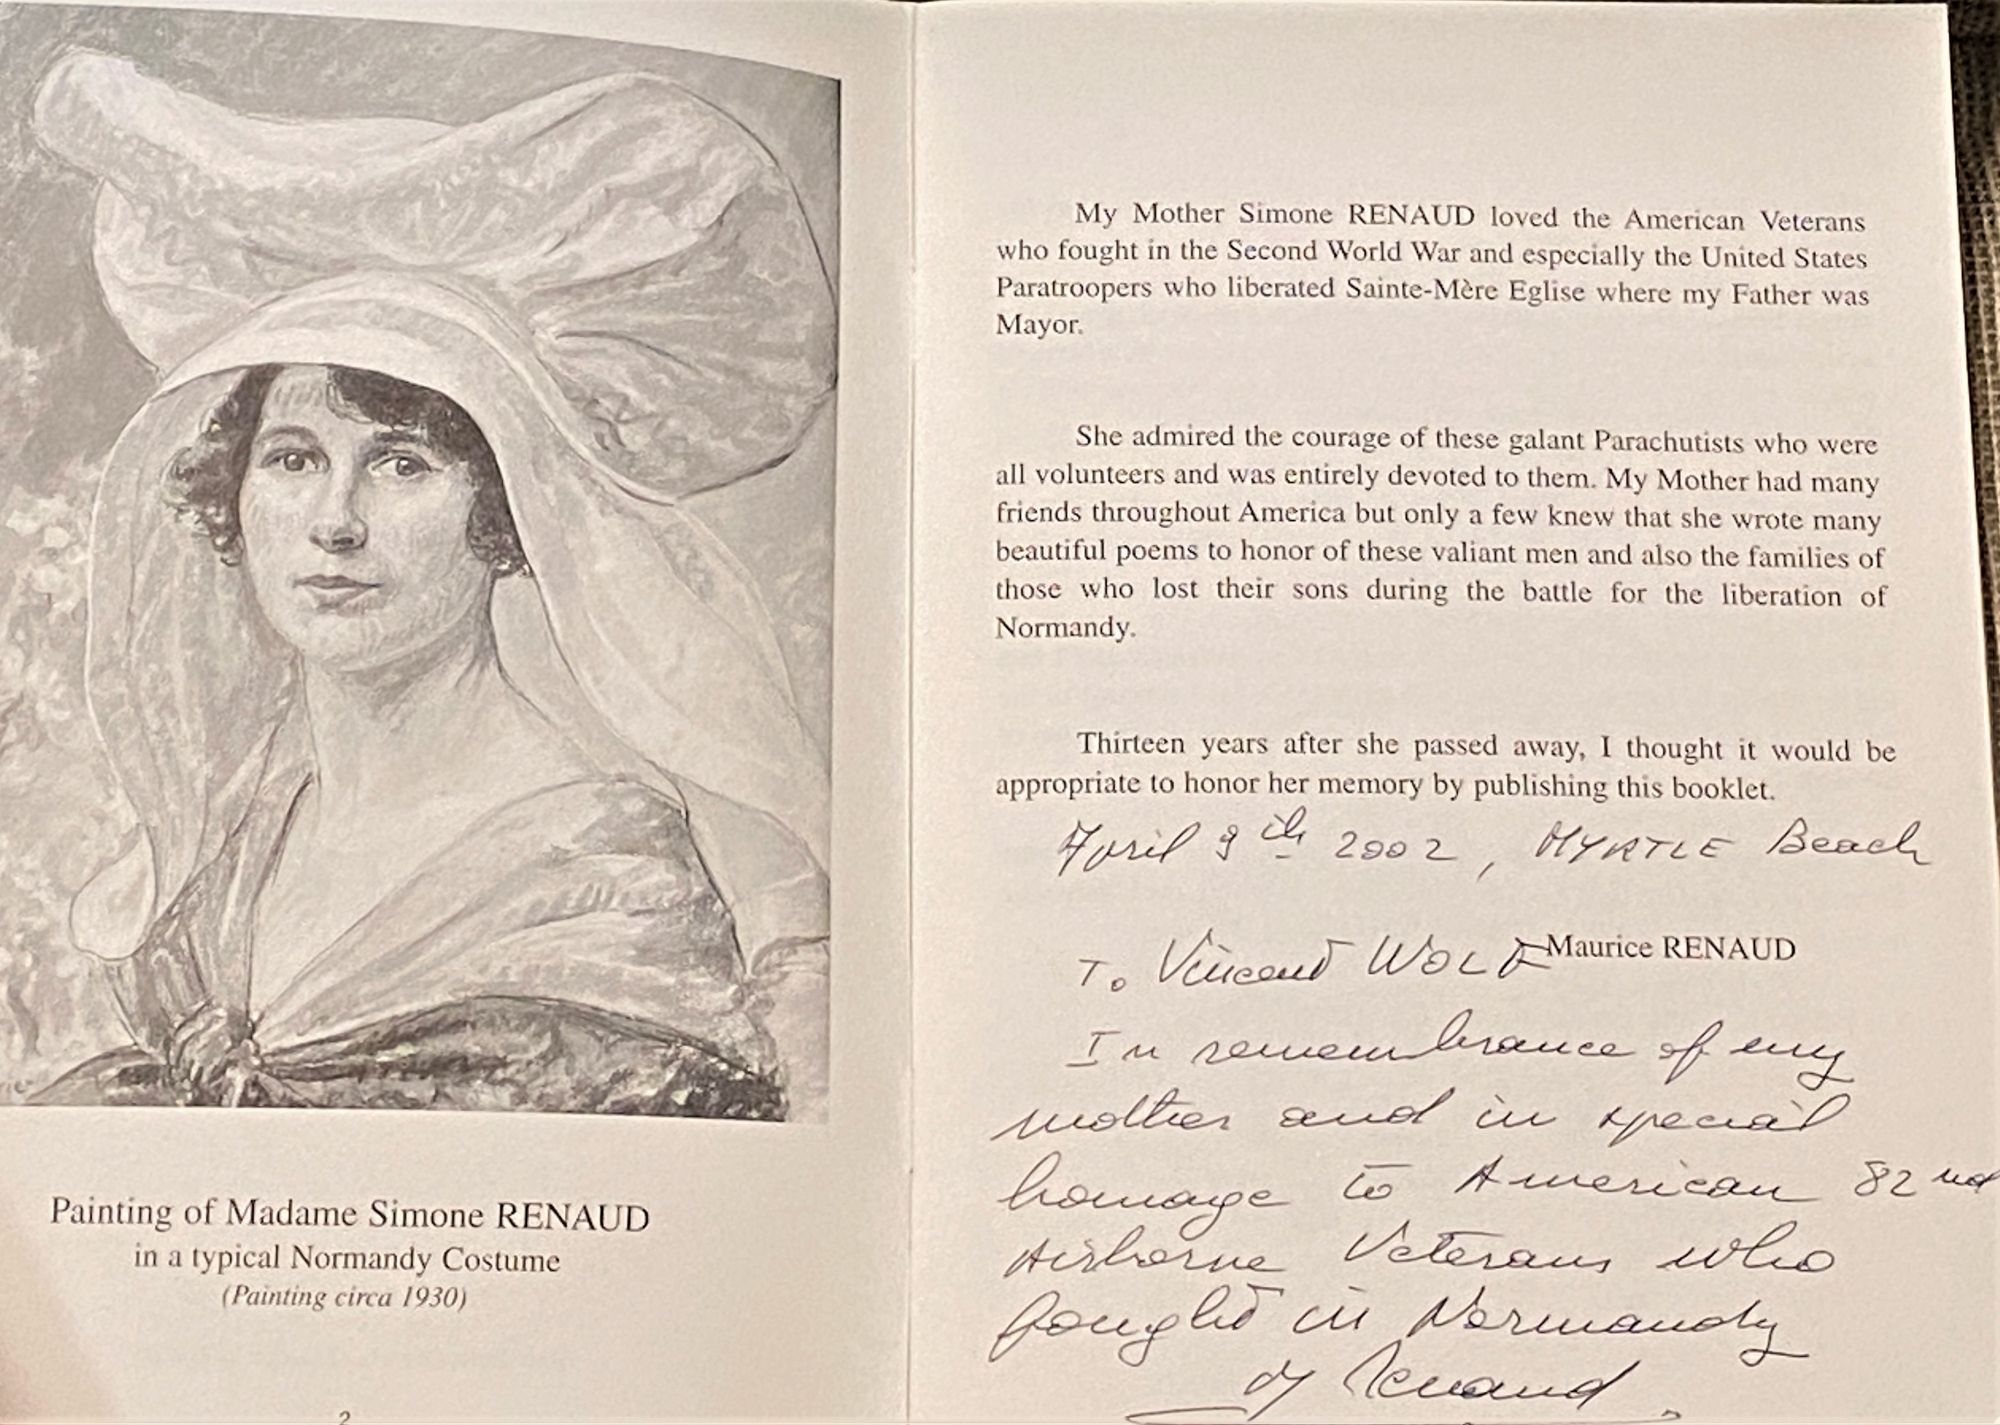 Painting of Madame Simone RENAUD
in a typical Normandy Costume
(Painting circa 1930)
2
My Mother Simone RENAUD loved the American Veterans
who fought in the Second World War and especially the United States
Paratroopers who liberated Sainte-Mère Eglise where my Father was
Mayor.
She admired the courage of these galant Parachutists who were
all volunteers and was entirely devoted to them. My Mother had many
friends throughout America but only a few knew that she wrote many
beautiful poems to honor of these valiant men and also the families of
those who lost their sons during the battle for the liberation of
Normandy.
Thirteen years after she passed away, I thought it would be
appropriate to honor her memory by publishing this booklet.
April 9th 2002, MYRTLE Beach
Maurice RENAUD
To Vincent WOLF
In remembrance of my
mother and in special
homage to American 82nd
Airborne Veterans who
fought in Normandy
Renaud